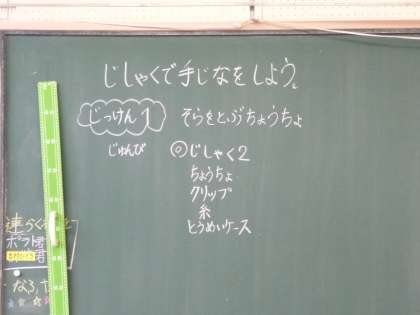 じしゃくで手じなをしよう。
じっけん1 そらをとぶちょうちょ
じゅんび ◎じしゃく2
ちょうちょ
クリップ
糸
とうめいケース
連らく